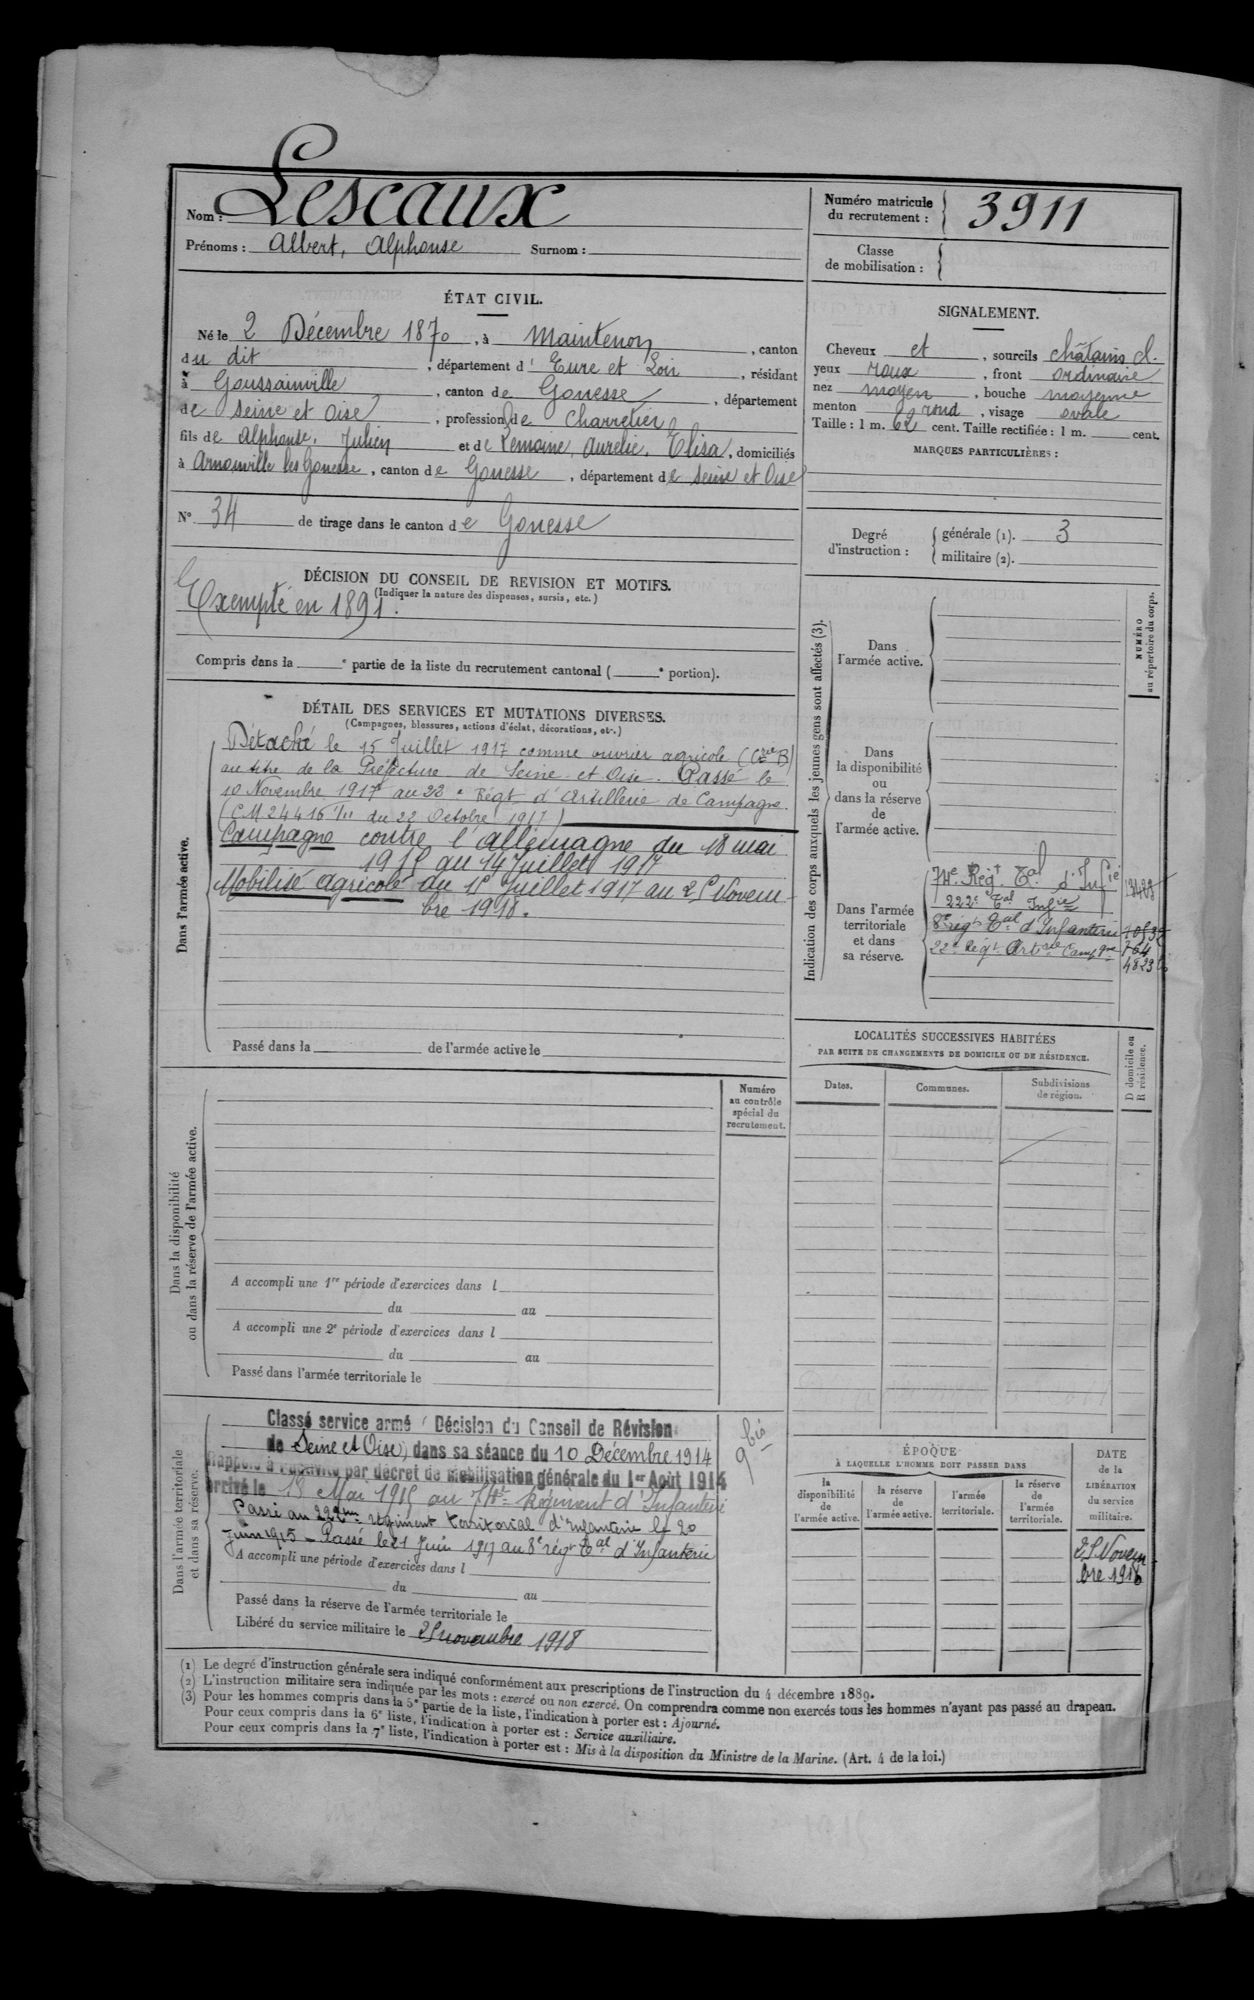 Nom : Lescaux
Prénoms : Albert, Alphonse Surnom :
Numéro matricule du recrutement : 3911
Classe de mobilisation :
ÉTAT CIVIL.
Né le 2 Décembre 1870, à Maintenon, canton
du dit, département d'Eure et Loir, résidant
à Goussainville, canton de Gonesse, département
de Seine et Oise, profession de Charretier
fils de Alphonse, Julien et de Lemoine, Aurelie, Elisa, domiciliés
à Arnouville les Gonesse, canton de Gonesse, département de Seine et Oise
N° 34 de tirage dans le canton de Gonesse
SIGNALEMENT.
Cheveux et, sourcils châtains cl.
yeux roux, front ordinaire
nez moyen, bouche moyenne
menton rond, visage ovale
Taille : 1 m. 62 cent. Taille rectifiée : 1 m. cent.
MARQUES PARTICULIÈRES :
Degré d'instruction : générale (1). 3
militaire (2).
DÉCISION DU CONSEIL DE REVISION ET MOTIFS.
(Indiquer la nature des dispenses, sursis, etc.)
Exempté en 1891.
Compris dans la e partie de la liste du recrutement cantonal ( e portion).
DÉTAIL DES SERVICES ET MUTATIONS DIVERSES.
(Campagnes, blessures, actions d'éclat, décorations, etc.)
Dans l'armée active.
Détaché le 15 Juillet 1917 comme ouvrier agricole (Cie B)
au titre de la Préfecture de Seine et Oise. Passé le
10 Novembre 1917 au 22e Régt d'Artillerie de Campagne.
(CM 24416 1/11 du 22 Octobre 1917)
Campagne contre l'allemagne du 18 mai
1915 au 14 Juillet 1917
Mobilisé agricole du 15 Juillet 1917 au 25 Novem-
bre 1918.
Passé dans la de l'armée active le
Indication des corps auxquels les jeunes gens sont affectés (3).
NUMÉRO au répertoire du corps.
Dans l'armée active.
Dans la disponibilité ou dans la réserve de l'armée active.
Dans l'armée territoriale et dans sa réserve.
74e Régt Tal d'Infie
222e Tal Infie
8e régt Tal d'Infanterie
22e Régt Artrie Campgne
764
LOCALITÉS SUCCESSIVES HABITÉES
PAR SUITE DE CHANGEMENTS DE DOMICILE OU DE RÉSIDENCE.
Dates. Communes. Subdivisions de région. D domicile ou R résidence.
Dans la disponibilité ou dans la réserve de l'armée active.
Numéro au contrôle spécial du recrutement.
A accompli une 1re période d'exercices dans l
du au
A accompli une 2e période d'exercices dans l
du au
Passé dans l'armée territoriale le
Dans l'armée territoriale et dans sa réserve.
Classé service armé (Décision du Conseil de Révision
de Seine et Oise) dans sa séance du 10 Décembre 1914
Rappelé à l'activité par décret de mobilisation générale du 1er Août 1914
arrivé le 18 Mai 1915 au 74e Régiment d'Infanterie
Passé au 222eme régiment territorial d'Infanterie le 20
Juin 1915 - Passé le 21 Juin 1917 au 8e régt Tal d'Infanterie
A accompli une période d'exercices dans l
du au
Passé dans la réserve de l'armée territoriale le
Libéré du service militaire le 25 novembre 1918
9 bis
ÉPOQUE
À LAQUELLE L'HOMME DOIT PASSER DANS
la disponibilité de l'armée active. la réserve de l'armée active. l'armée territoriale. la réserve de l'armée territoriale.
DATE de la LIBÉRATION du service militaire.
25 Novem-
bre 1918
(1) Le degré d'instruction générale sera indiqué conformément aux prescriptions de l'instruction du 4 décembre 1889.
(2) L'instruction militaire sera indiquée par les mots : exercé ou non exercé. On comprendra comme non exercés tous les hommes n'ayant pas passé au drapeau.
(3) Pour les hommes compris dans la 5e partie de la liste, l'indication à porter est : Ajourné.
Pour ceux compris dans la 6e liste, l'indication à porter est : Service auxiliaire.
Pour ceux compris dans la 7e liste, l'indication à porter est : Mis à la disposition du Ministre de la Marine. (Art. 4 de la loi.)